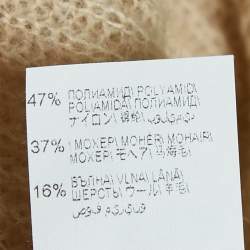 47% ПОЛИАМИД\ POLYAMID\
POLIAMIDA\ ПОЛИАМИД\
ナイロン\ 锦纶\ بوليميد\
37% \ МОХЕР\ MOHÉR\ MOHAIR\
МОХЕР\ モヘア\ 马海毛\
16% ВЪЛНА\ VLNA\ LÂNĂ\
ШЕРСТЬ\ ウール\ 羊毛\
صوف